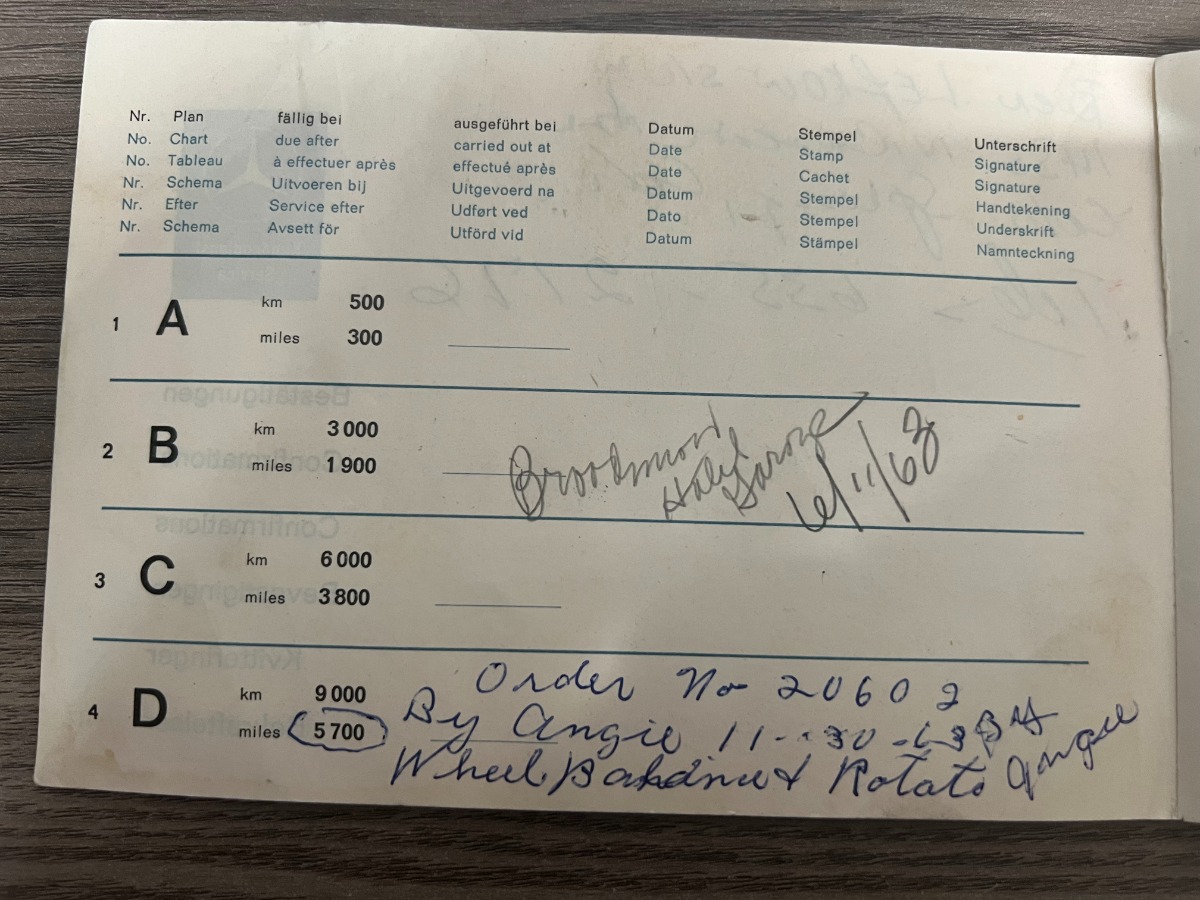 Nr. Plan fällig bei ausgeführt bei Datum Stempel Unterschrift
No. Chart due after carried out at Date Stamp Signature
No. Tableau à effectuer après effectué après Date Cachet Signature
Nr. Schema Uitvoeren bij Uitgevoerd na Datum Stempel Handtekening
Nr. Efter Service efter Udført ved Dato Stempel Underskrift
Nr. Schema Avsett för Utförd vid Datum Stämpel Namnteckning
1 A km 500
miles 300
2 B km 3 000
miles 1 900
6/11/63
3 C km 6 000
miles 3 800
4 D km 9 000
miles 5 700
Order No 20602
By Angie 11-30-63 By Angie
Wheel Rotate